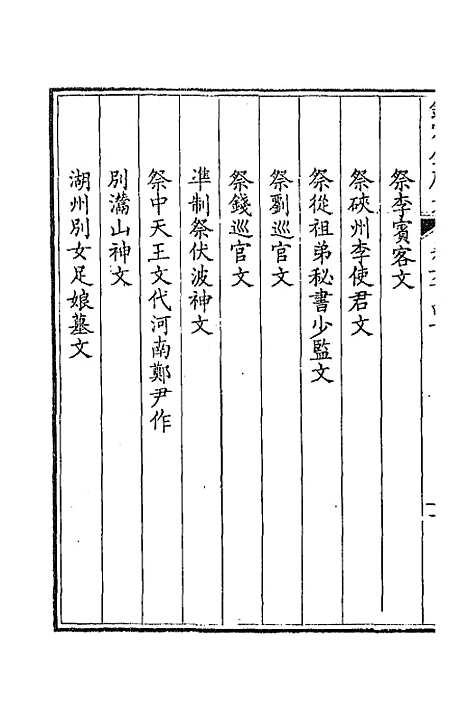 祭李賓客文
祭硤州李使君文
祭從祖弟秘書少監文
祭劉巡官文
祭錢巡官文
準制祭伏波神文
祭中天王文代河南鄭尹作
別灊山神文
湖州別女足娘墓文